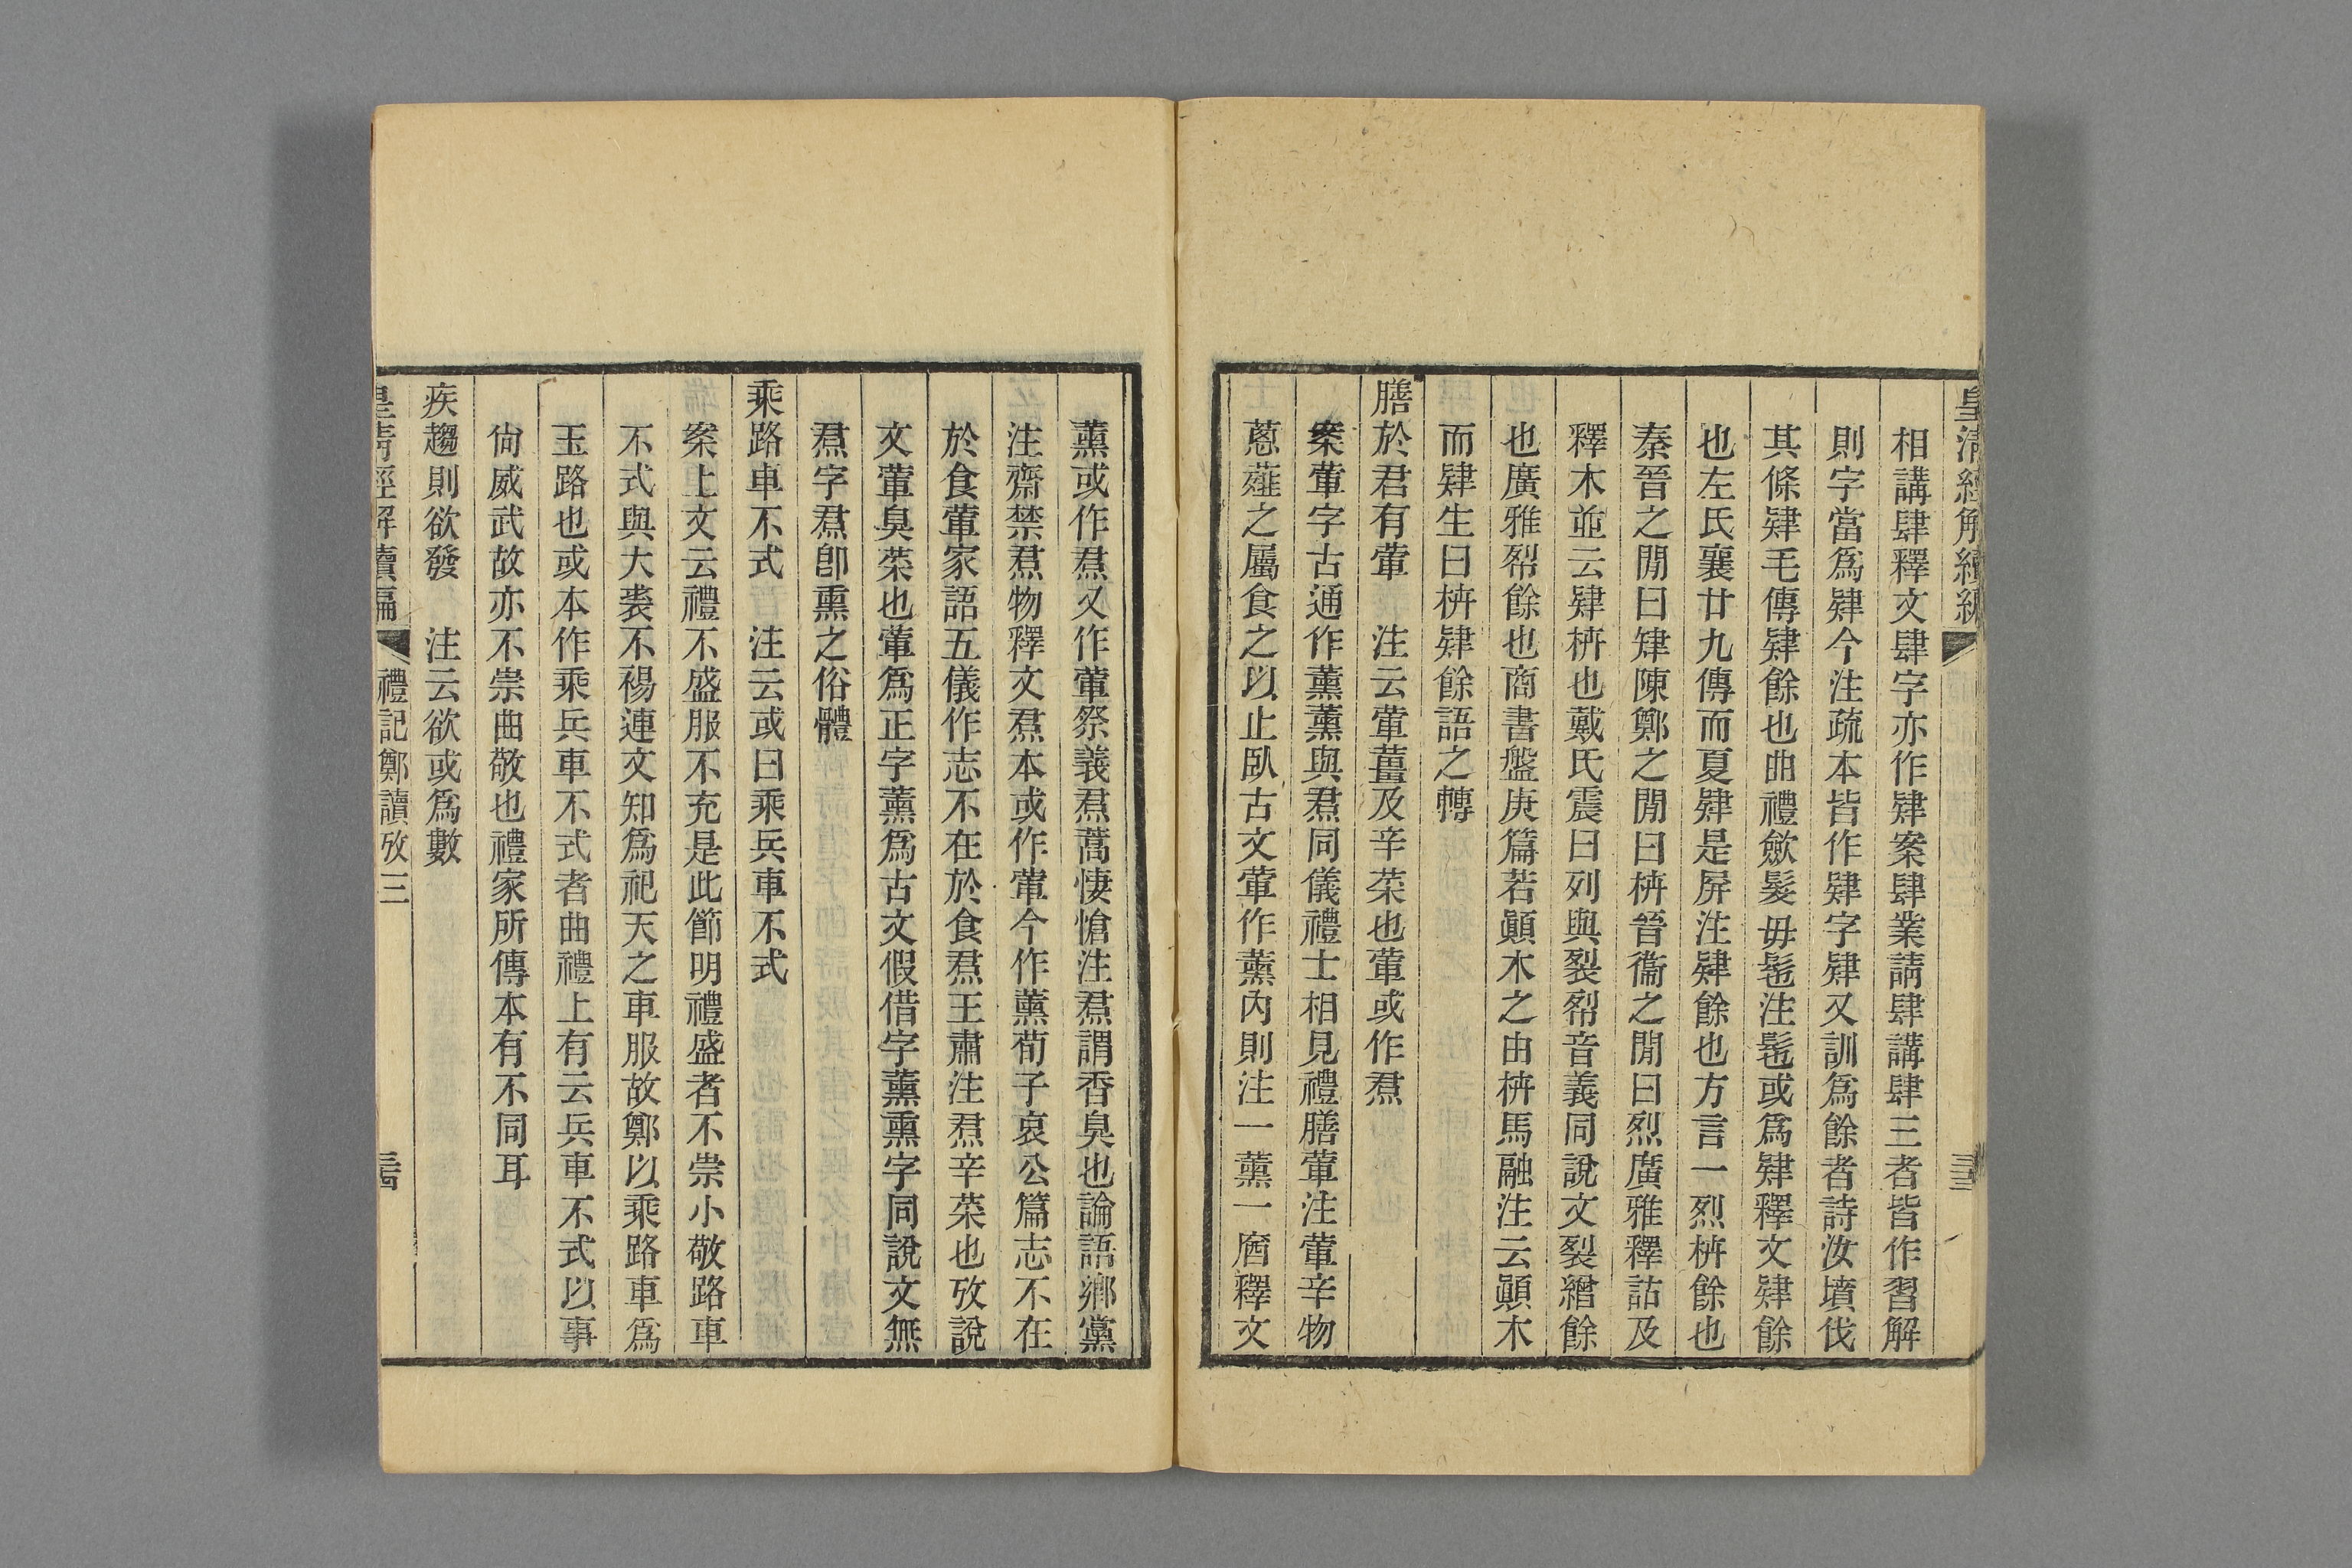 皇清經解續編
相講肆釋文肆字亦作肄案肆業請肆講肆三者皆作習解
則字當爲肄今注疏本皆作肄字肄又訓爲餘者詩汝墳伐
其條肄毛傳肄餘也曲禮斂髮毋髢注髢或爲肄釋文肄餘
也左氏襄廿九傳而夏肄是屏注肄餘也方言一烈枿餘也
秦晉之閒曰肄陳鄭之閒曰枿晉衞之閒曰烈廣雅釋詁及
釋木並云肄枿也戴氏震曰列與裂𢁛音義同說文裂繒餘
也廣雅𢁛餘也商書盤庚篇若顚木之由枿馬融注云顚木
而肄生曰枿肄餘語之轉
膳於君有葷 注云葷薑及辛菜也葷或作焄
案葷字古通作薰薰與焄同儀禮士相見禮膳葷注葷辛物
蔥薤之屬食之以止臥古文葷作薰內則注一薰一蕕釋文
薰或作焄又作葷祭義焄蒿悽愴注焄謂香臭也論語鄉黨
注齋禁焄物釋文焄本或作葷今作薰荀子哀公篇志不在
於食葷家語五儀作志不在於食焄王肅注焄辛菜也攷說
文葷臭菜也葷爲正字薰爲古文假借字薰熏字同說文無
焄字焄卽熏之俗體
乘路車不式 注云或曰乘兵車不式
案上文云禮不盛服不充是此節明禮盛者不崇小敬路車
不式與大裘不裼連文知爲祀天之車服故鄭以乘路車爲
玉路也或本作乘兵車不式者曲禮上有云兵車不式以事
尙威武故亦不崇曲敬也禮家所傳本有不同耳
疾趨則欲發 注云欲或爲數
皇清經解續編 禮記鄭讀攷三